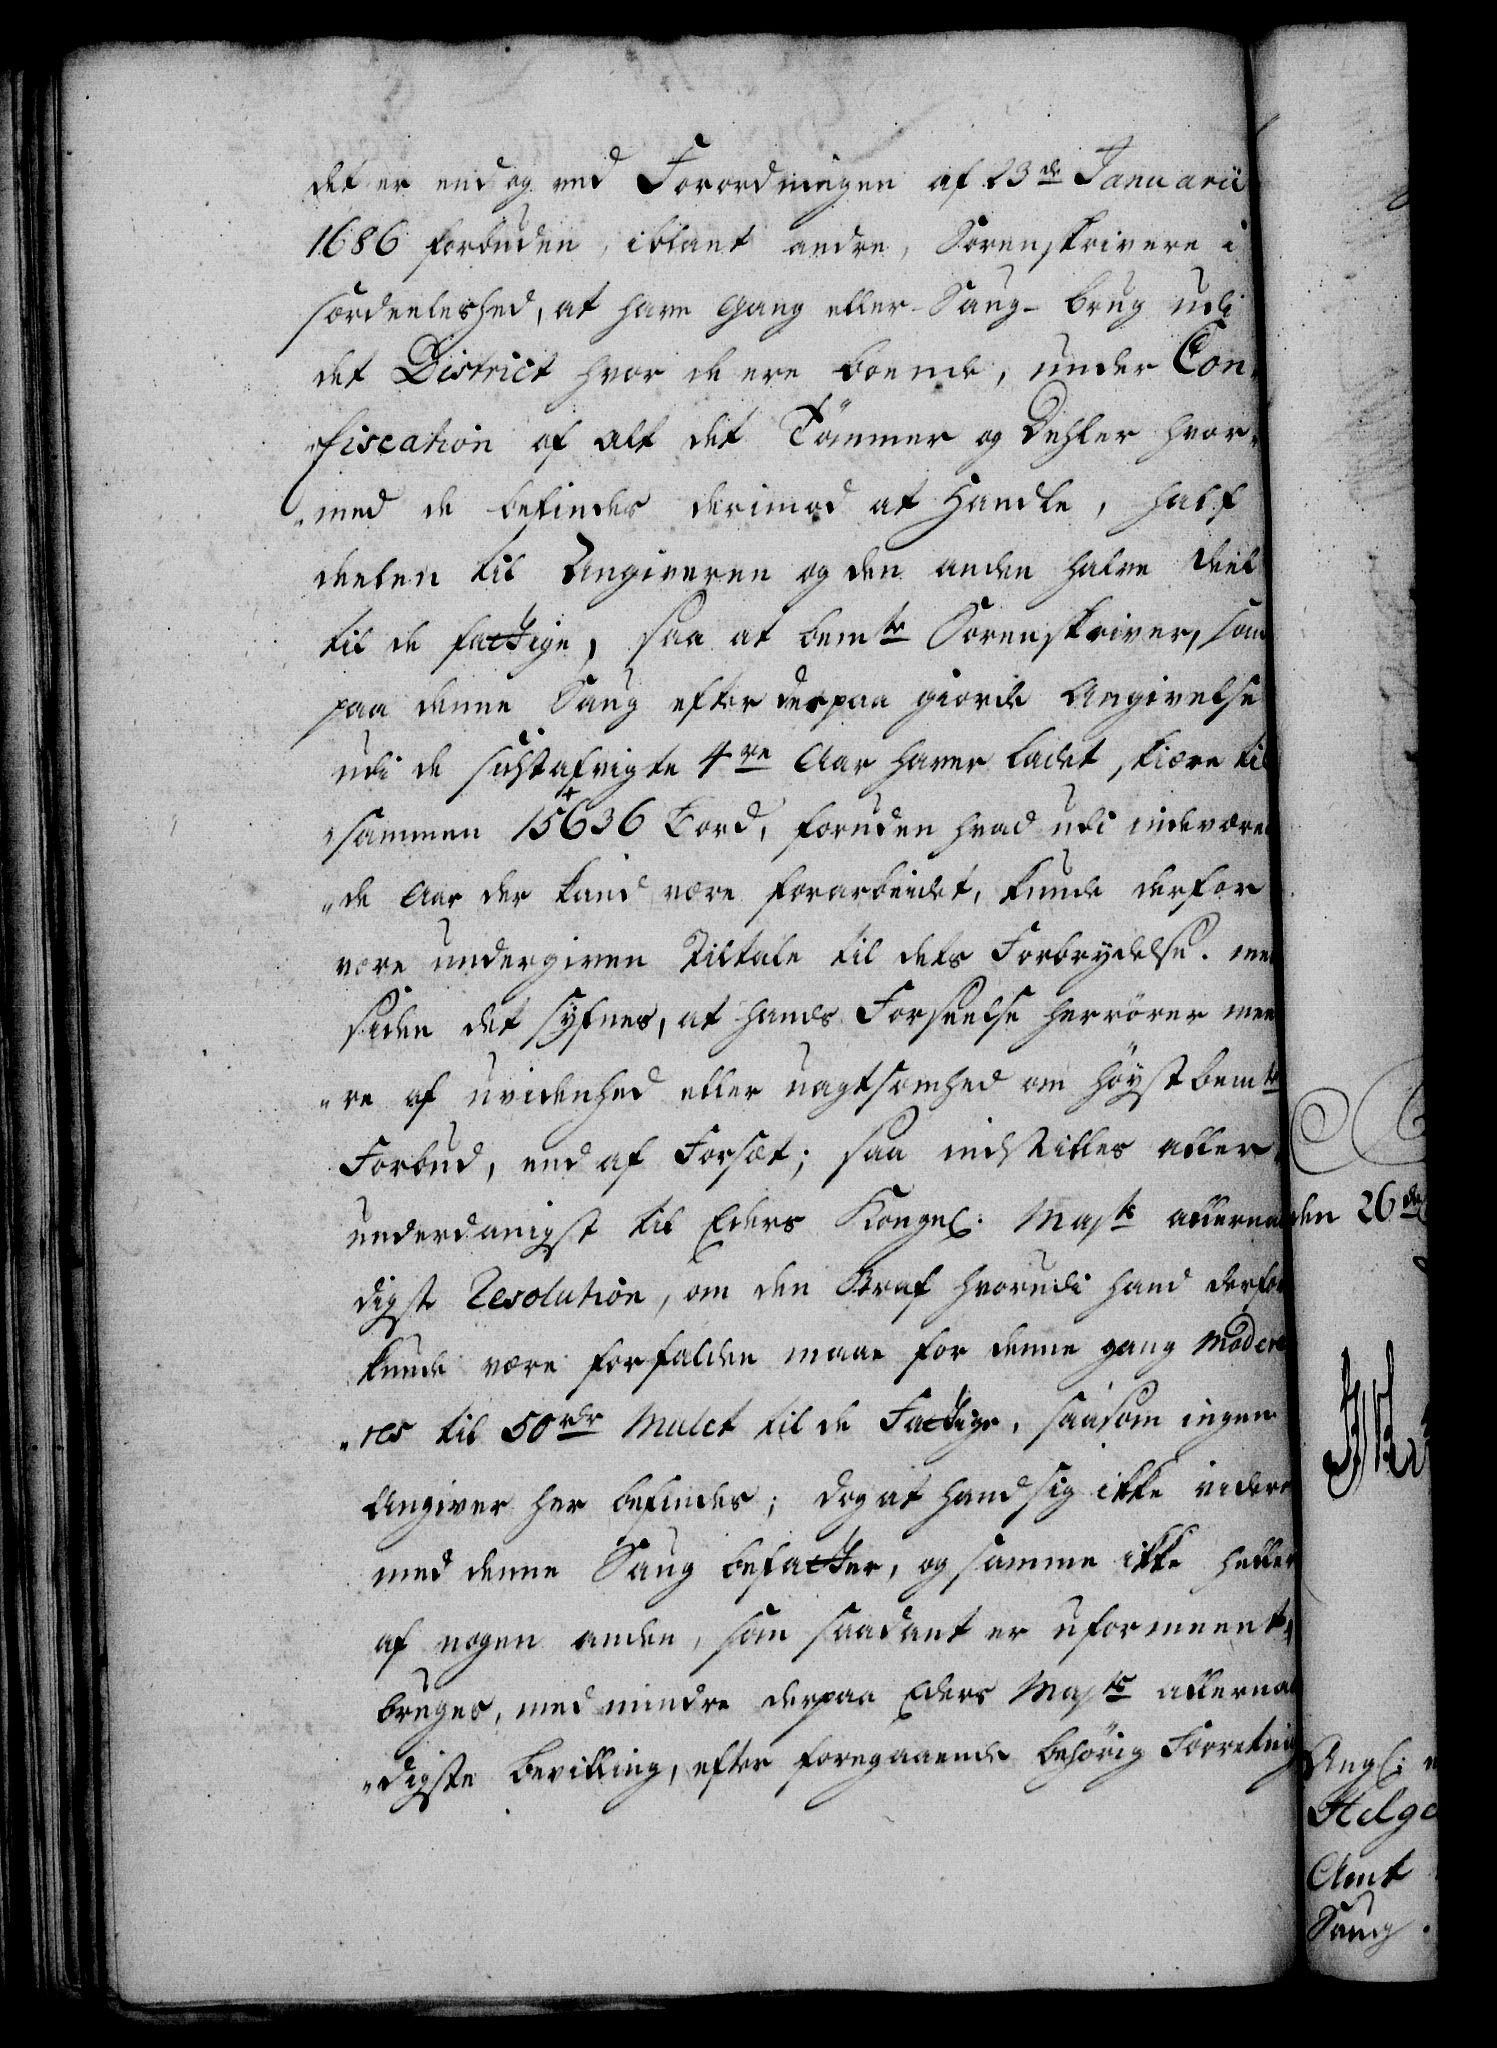 det er end og ved Forordningen af 23de Januarii
1686 forbuden, iblant andre, Sorenskrivere i
særdeeleshed, at have Gang eller Saug-brug udi
det District hvor de ere boende, under Con„
„fiscation af alt det Tömmer og Dehler hvor„
„med de befindes derimod at Handle, half
deelen til Angiveren og den anden halve Deel
til de fattige, saa at bemte Sorenskriver, som
paa denne Saug efter derpaa giorde Angivelse
udi de sidst afvigte 4re Aar haver ladet skiære til
„sammen 15636 Bord, foruden hvad udi indeværen
„de Aar der kand være forarbeidet, kunde derfor
være undergiven Tiltale til dets Forbrydelse. men
siden det syfnes, at hands Forseelse herrörer mee
„re af uvidenhed eller uagtsomhed om höystbemte
Forbud, end af Forsæt; saa indstilles aller„
underdanigst til Eders Kongel: Mayts allernaa
digste Resolution, om den Straf hvorudi hand derfor
kunde være forfalden maae for denne gang modere
„res til 50 rdr Mulct til de Fattige, saasom ingen
Angiver her befindes; dog at hand sig ikke videre
med denne Saug befatter, og samme ikke heller
af nogen anden, som saadant er uformeent,
bruges, med mindre derpaa Eders Mayts allernaa
„digste Bevilling, efter foregaaende behörig Forretning
den 26de
Angl:
Helge
Amt
Saug.